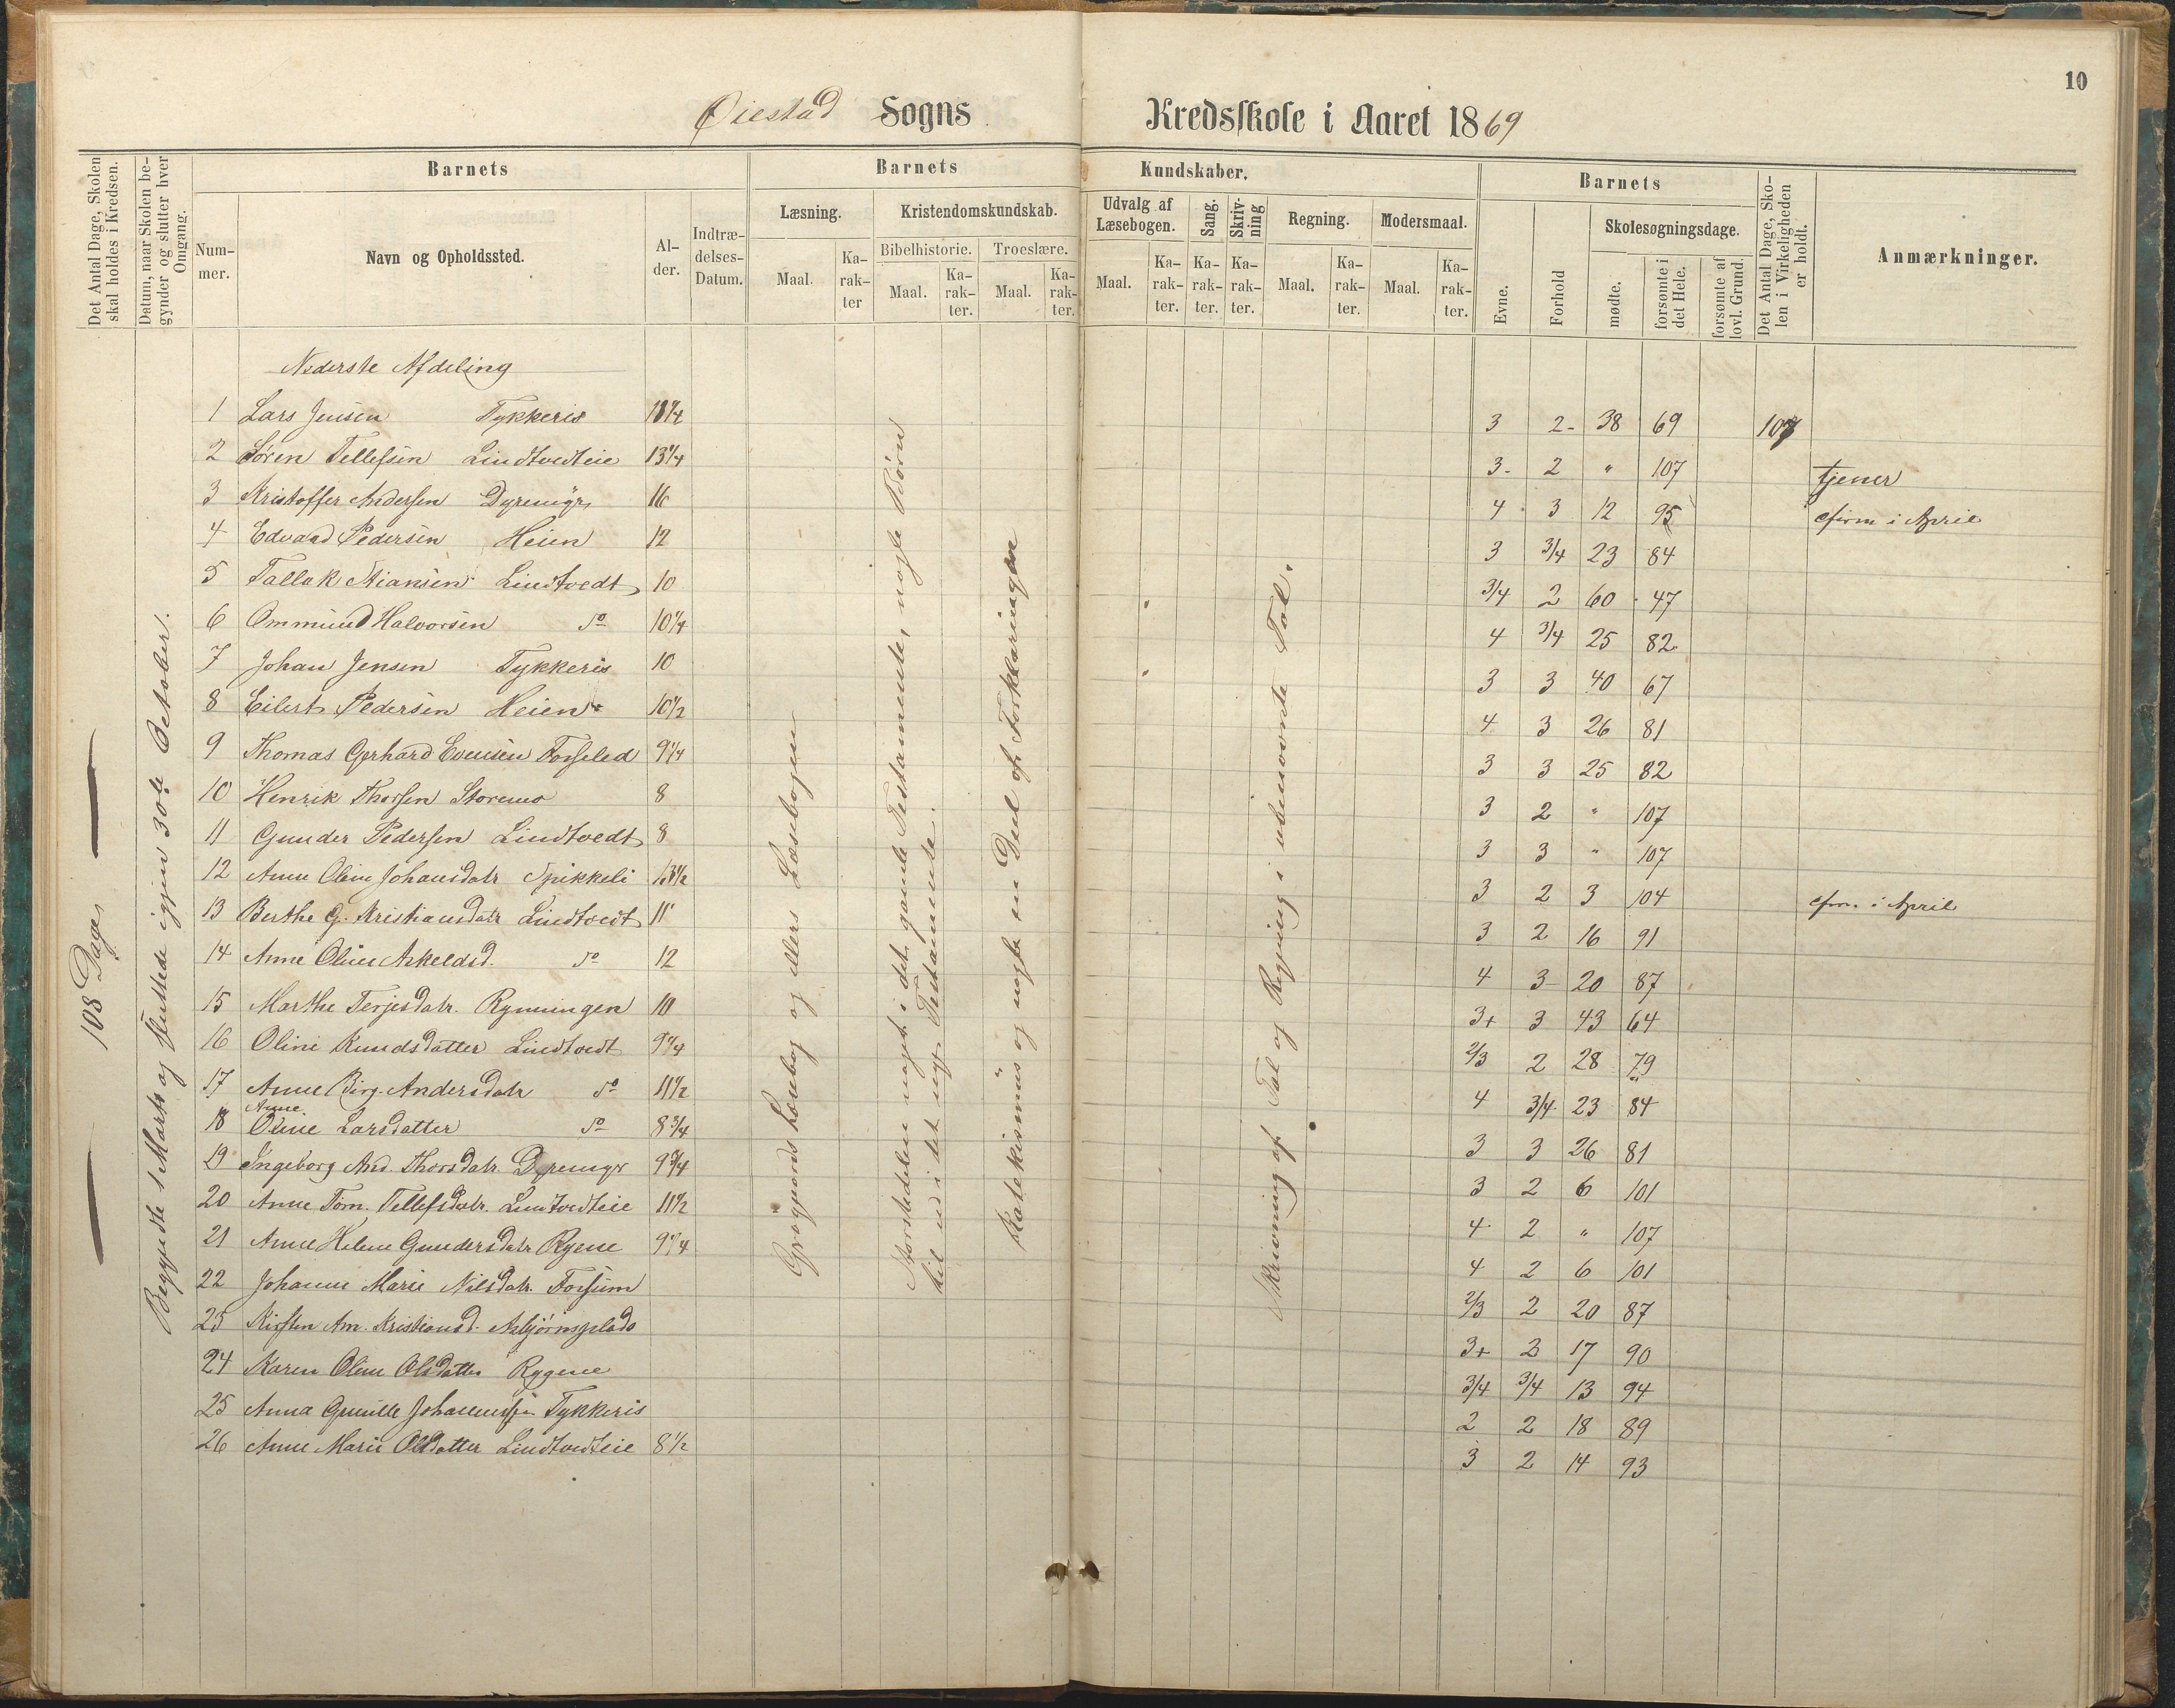 10
Øiestad Sogns Kredsskole i Aaret 1869
Det Antal Dage, Skolen skal holdes i Kredsen.
Datum, naar Skolen begynder og slutter hver Omgang.
Barnets
Nummer.
Navn og Opholdssted.
Alder.
Indtrædelses-Datum.
Barnets Kundskaber.
Læsning.
Maal. Karakter
Kristendomskundskab.
Bibelhistorie. Troeslære.
Maal. Karakter. Maal. Karakter.
Udvalg af Læsebogen.
Maal. Karakter.
Sang. Karakter.
Skrivning Karakter.
Regning.
Maal. Karakter.
Modersmaal.
Maal. Karakter.
Barnets
Evne. Forhold
Skolesøgningsdage.
mødte. forsømte i det Hele. forsømte af lovl. Grund.
Det Antal Dage, Skolen i Virkeligheden er holdt.
Anmærkninger.
108 Dage
Begyndte 1 Marts og sluttede igjen 30te October.
Nederste Afdeling
1 Lars Jensen Tykkeris 3 2- 38 69 107
2 Søren Tellefsen Lindtvedteie 13 1/4 3- 2 " 107 tjener
3 Kristoffer Andersen Dyremyr 16 4 3 12 95 cfirm i April
4 Edvard Pedersen Heien 12 3 3/4 23 84
5 Tallak Stiansen Lindtvedt 10 3/4 2 60 47
6 Ommund Halvorsen do 10 1/4 4 3/4 25 82
7 Johan Jensen Tykkeris 10 3 3 40 67
8 Eilert Pedersen Heien 10 1/2 4 3 26 81
9 Thomas Gerhard Evensen 9 1/4 3 3 25 82
10 Henrik Thorsen Storemo 8 3 2 " 107
11 Gunder Pedersen Lindtvedt 8 3 3 " 107
12 Anne Oline Johansdatr Spikkeli 13 1/2 3 2 3 104 cfirm. i April
13 Berthe G. Kristiansdatr Lindtvedt 11 3 2 16 91
14 Anne Oline Askeldsd. do 12 4 3 20 87
15 Marthe Terjesdatr. Rynningen 10 3+ 3 43 64
16 Oline Knudsdatter Lindtvedt 9 1/4 2/3 2 28 79
17 Anne Birg. Andersdatr do 11 1/2 4 3/4 23 84
18 Anne Oline Larsdatter do 8 3/4 3 3 26 81
19 Ingeborg And. Thorsdatr. Dyremyr 9 3/4 3 2 6 101
20 Anne Tom. Tellefsdatr. Lindtvedteie 11 1/2 4 2 " 107
21 Anne Helene Gundersdatr Rygene 9 1/4 4 2 6 101
22 Johanne Marie Nilsdatr. Fossum 2/3 2 20 87
23 Kirsten Am. Kristiansd. Asbjørnsplads 3+ 2 17 90
24 Karen Oline Olsdatter Rygene 3/4 3/4 13 94
25 Anna Gunille Tykkeris 2 2 18 89
26 Anne Marie Olsdatter Lindtvedteie 8 1/2 3 2 14 93
Læsebog og ellers Læsebogen
Størstedelen noget i det gamle Testamente, nogle Børn
til ud i det nye Testamente.
Katekismus og nogle en Deel af Forklaringen
Skrivning af Tal og Regning i ubenævnte Tal.